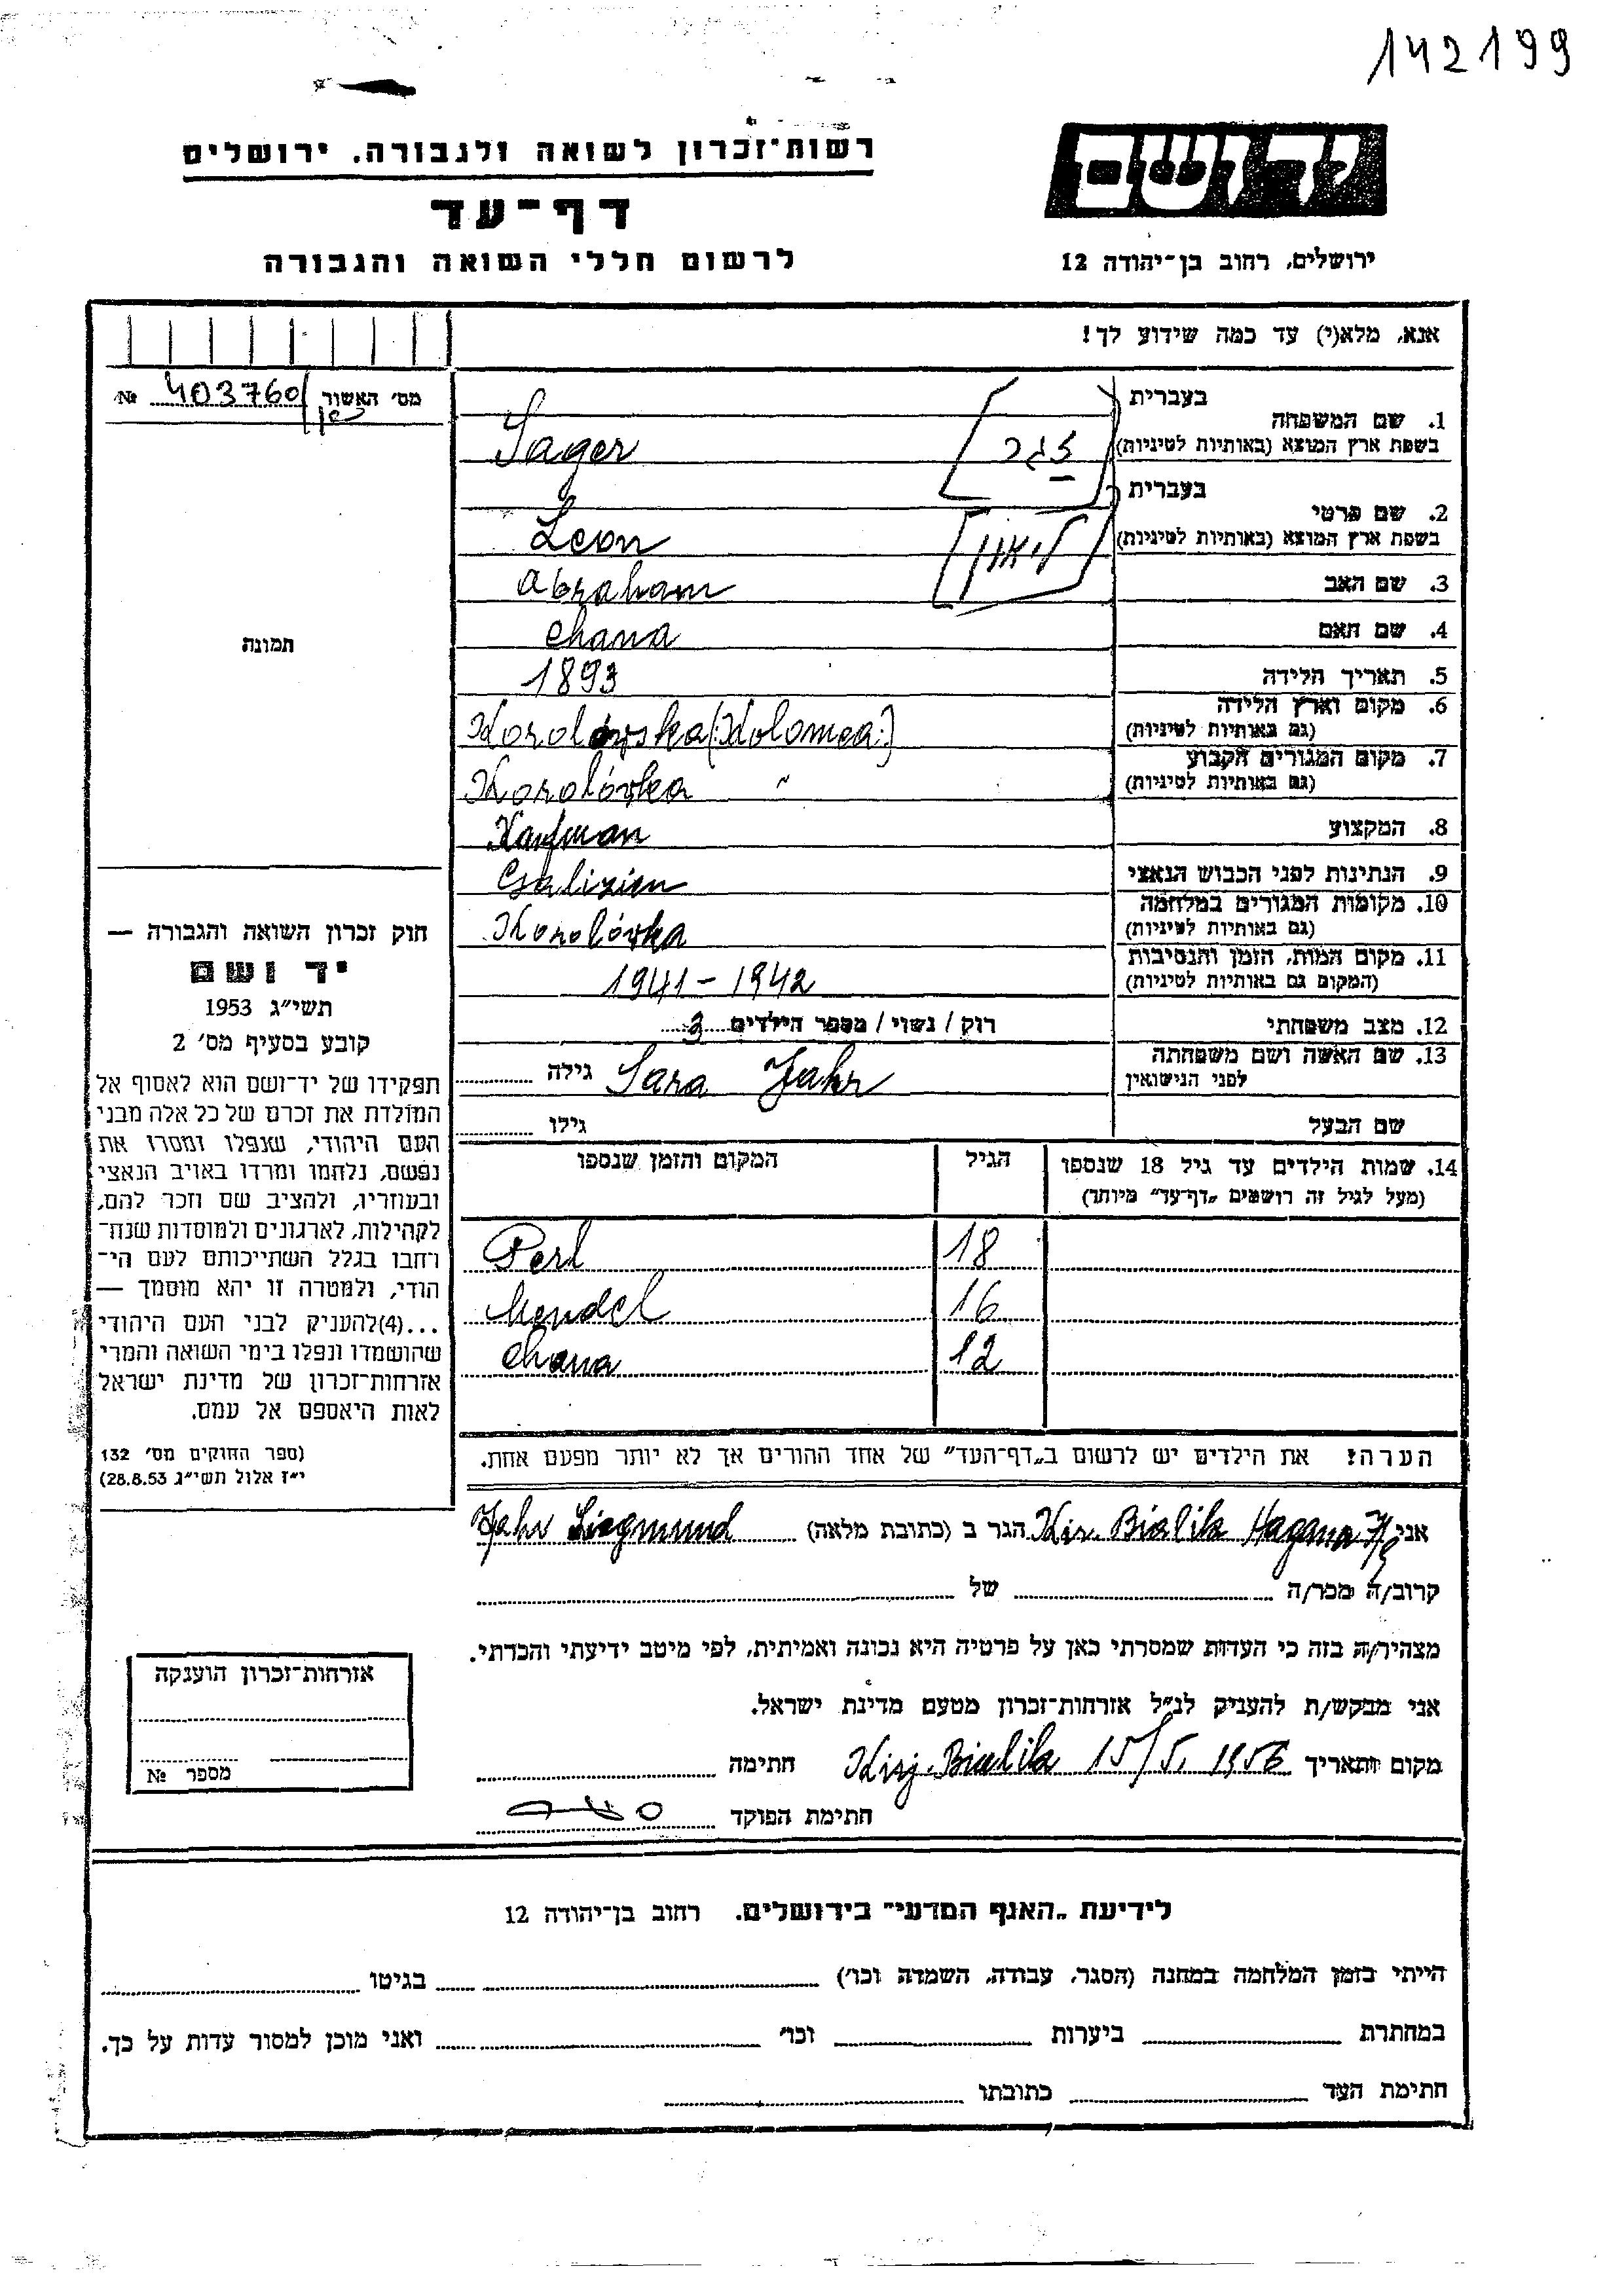 142199
יד ושם
רשות־זכרון לשואה ולגבורה. ירושלים
דף־עד
לרשום חללי השואה והגבורה
ירושלים, רחוב בן־יהודה 12
אנא, מלא(י) עד כמה שידוע לך!
מס׳ האשור 403760 №
1. שם המשפחה
בעברית
בשפת ארץ המוצא (באותיות לטיניות)
[זגר]
Sager
2. שם פרטי
בעברית
בשפת ארץ המוצא (באותיות לטיניות)
[ליאון]
Leon
3. שם האב
Abraham
4. שם האם
Chana
5. תאריך הלידה
1893
6. מקום וארץ הלידה
(גם באותיות לטיניות)
(Kolomea)
7. מקום המגורים הקבוע
(גם באותיות לטיניות)
Korolówka "
8. המקצוע
Kaufman
9. הנתינות לפני הכבוש הנאצי
Galizien
10. מקומות המגורים במלחמה
(גם באותיות לטיניות)
Korolówka
11. מקום המות, הזמן והנסיבות
(המקום גם באותיות לטיניות)
1941 - 1942
12. מצב משפחתי
רוק / נשוי / מספר הילדים 3
13. שם האשה ושם משפחתה
לפני הנישואין
Sara Jahr
גילה
שם הבעל
גילו
14. שמות הילדים עד גיל 18 שנספו
(מעל לגיל זה רושמים „דף־עד" מיוחד)
הגיל
המקום והזמן שנספו
Perl 18
Mendel 16
Chana 12
הערה: את הילדים יש לרשום ב„דף־העד" של אחד ההורים אך לא יותר מפעם אחת.
תמונה
חוק זכרון השואה והגבורה —
יד ושם
תשי״ג 1953
קובע בסעיף מס׳ 2
תפקידו של יד־ושם הוא לאסוף אל
המולדת את זכרם של כל אלה מבני
העם היהודי, שנפלו ומסרו את
נפשם, נלחמו ומרדו באויב הנאצי
ובעוזריו, ולהציב שם וזכר להם,
לקהילות, לארגונים ולמוסדות שנח־
רחבו בגלל השתייכותם לעם הי־
הודי, ולמטרה זו יהא מוסמך —
...(4)להעניק לבני העם היהודי
שהושמדו ונפלו בימי השואה והמרי
אזרחות־זכרון של מדינת ישראל
לאות היאספם אל עמם.
(ספר החוקים מס׳ 132
י״ז אלול תשי״ג 28.8.53)
אני Jahr Siegmund הגר ב (כתובת מלאה) Kir. Bialik Hagana
קרוב/ה מכר/ה של
מצהיר/ה בזה כי העדות שמסרתי כאן על פרטיה היא נכונה ואמיתית, לפי מיטב ידיעתי והכרתי.
אני מבקש/ת להעניק לנ״ל אזרחות־זכרון מטעם מדינת ישראל.
מקום ותאריך Kirj. Bialik 15/5. 1956 חתימה
חתימת הפוקד
אזרחות־זכרון הוענקה
מספר №
לידיעת „האגף המדעי" בירושלים. רחוב בן־יהודה 12
הייתי בזמן המלחמה במחנה (הסגר, עבודה, השמדה וכו׳) בגיטו
במחתרת ביערות וכו׳ ואני מוכן למסור עדות על כך.
חתימת העד כתובתו